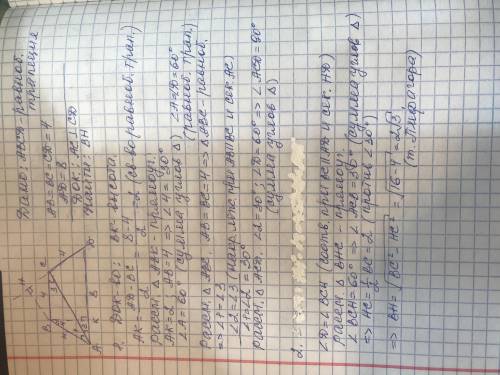 Дано: ABCD - равноб.
трапеция
AB=BC=CD=4
AD=8
Док: AC⊥CD
Найти: BH
1. Док-во: BK - высота,
AK = (AD-BC)/2 = (8-4)/2 = 2 (св-во равноб. трап.)
Рассм. △ABK - прямоуг.
AK=2, AB=4 => ∠4=30°
∠A=60° (сумма углов △) ∠A=∠D=60°
(равноб. трап.)
Рассм. △ABC, AB=BC=4 => △ABC - равноб.
=> ∠1=∠3
∠2=∠3 (накр. леж. при AD∥BC и сек. AC)
∠1=∠2=30°
Рассм. △ACD, ∠2=30°; ∠D=60° => ∠ACD=90°
(сумма углов △)
2.
∠D=∠BCH (соотв. при BC∥AD и сек. HD)
Рассм △BHC - прямоуг.
∠BCH=60° => ∠HBC=30° (сумма углов △)
=> HC=1/2 BC=2 (против ∠30°)
=> BH=√(BC²-HC²)=√(16-4)=2√3
(т. Пифагора)